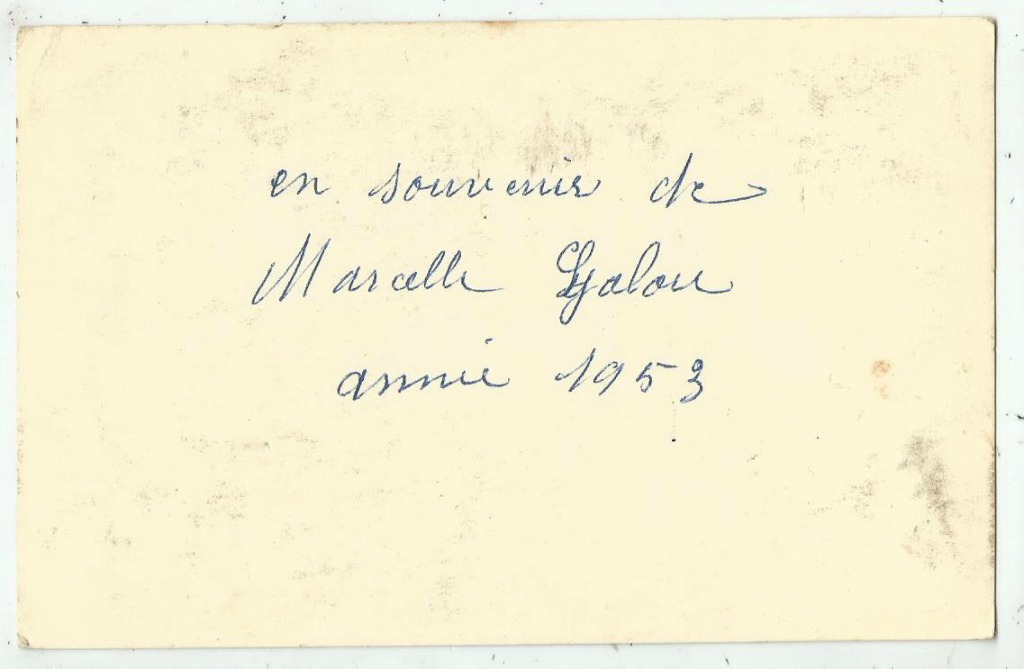 en souvenir de
Marcelle
année 1953